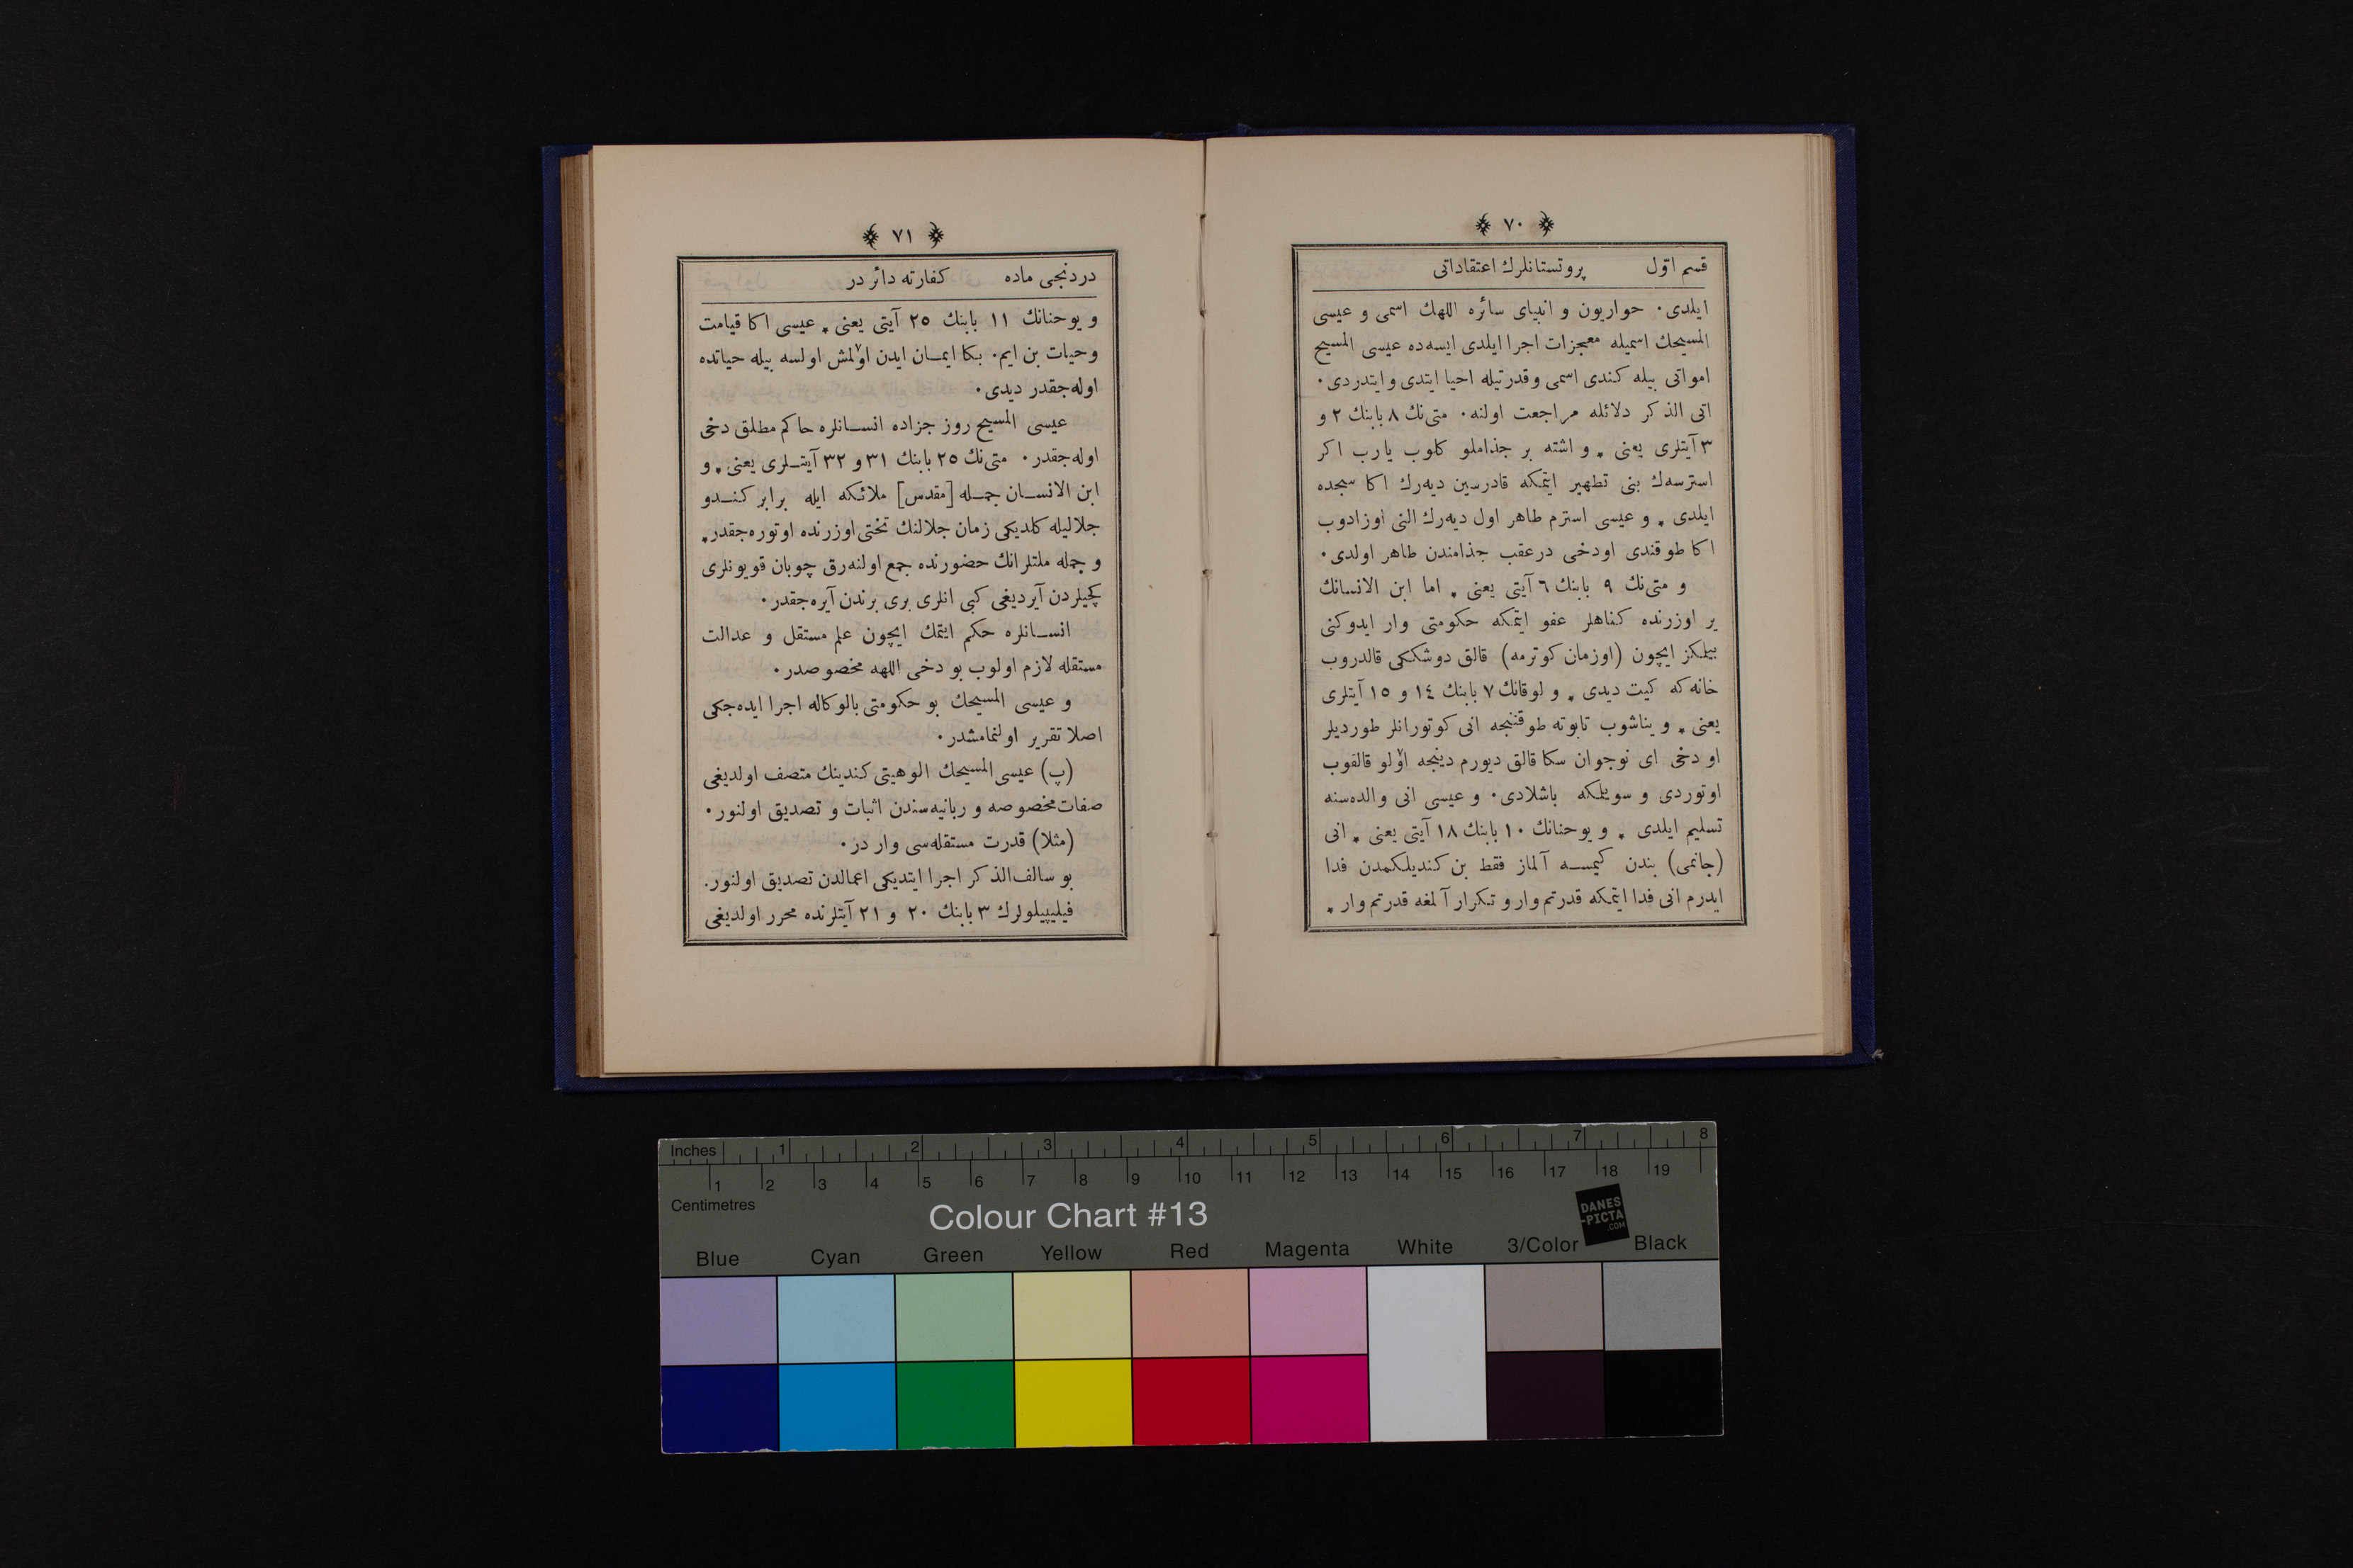 ﴿ ٧٠ ﴾
قسم اوّل پروتستانلرك اعتقاداتی
ایلدی۰ حواریون و انبیای سائره اللهك اسمی و عیسی
المسیحك اسمیله معجزات اجرا ایلدی ایسه‌ده عیسی المسیح
امواتی بیله کندی اسمی وقدرتیله احیا ایتدی وایتدردی۰
اتی الذکر دلائله مراجعت اولنه۰ متی‌نك ٨ بابنك ٢ و
٣ آیتلری یعنی ٭ و اشته بر جذاملو کلوب یارب اکر
استرسه‌ك بنی تطهیر ایتمکه قادرسین دیه‌رك اکا سجده
ایلدی ٭ و عیسی استرم طاهر اول دیه‌رك النی اوزادوب
اکا طوقندی اودخی درعقب جذامندن طاهر اولدی۰
و متی‌نك ٩ بابنك ٦ آیتی یعنی ٭ اما ابن الانسانك
یر اوزرنده کناهلر عفو ایتمکه حکومتی وار ایدوکنی
بیلمکز ایچون (اوزمان کوترمه) قالق دوشککی قالدروب
خانه‌که کیت دیدی ٭ و لوقانك ٧ بابنك ١٤ و ١٥ آیتلری
یعنی ٭ ویناشوب تابوته طوقننجه انی کوتورانلر طوردیلر
او دخی ای نوجوان سکا قالق دیورم دینجه اوٗلو قالقوب
اوتوردی و سویلمکه باشلادی۰ و عیسی انی والده‌سنه
تسلیم ایلدی ٭ و یوحنانك ١٠ بابنك ١٨ آیتی یعنی ٭ انی
(جانمی) بندن کیمسه آلماز فقط بن کندیلکمدن فدا
ایدرم انی فدا ایتمکه قدرتم وار و تکرار آلمغه قدرتم وار ٭
﴿ ٧١ ﴾
دردنجی ماده کفارته دائر در
و یوحنانك ١١ بابنك ٢٥ آیتی یعنی ٭ عیسی اکا قیامت
وحیات بن ایم۰ بکا ایمان ایدن اوٗلمش اولسه بیله حیاتده
اوله‌جقدر دیدی۰
عیسی المسیح روز جزاده انسانلره حاکم مطلق دخی
اوله‌جقدر۰ متی‌نك ٢٥ بابنك ٣١ و ٣٢ آیتلری یعنی ٭ و
ابن الانسان جمله [مقدس] ملائکه ایله برابر کندو
جلالیله کلدیکی زمان جلالنك تختی اوزرنده اوتوره‌جقدر٭
و جمله ملتلر انك حضورنده جمع اولنه‌رق چوبان قویونلری
کچیلردن آیردیغی کبی انلری بری برندن آیره‌جقدر۰
انسانلره حکم ایتمك ایچون علم مستقل و عدالت
مستقله لازم اولوب بو دخی اللهه مخصوصدر۰
و عیسی المسیحك بو حکومتی بالوکاله اجرا ایده‌جکی
اصلا تقریر اولنمامشدر۰
(پ) عیسی المسیحك الوهیتی کندینك متصف اولدیغی
صفات مخصوصه و ربانیه‌سندن اثبات و تصدیق اولنور۰
(مثلا) قدرت مستقله‌سی وار در۰
بو سالف‌الذکر اجرا ایتدیکی اعمالدن تصدیق اولنور.
فیلیپیلولرك ٣ بابنك ٢٠ و ٢١ آیتلرنده محرر اولدیغی
Inches 1 2 3 4 5 6 7 8
1 2 3 4 5 6 7 8 9 10 11 12 13 14 15 16 17 18 19
Centimetres
Colour Chart #13
DANES
-PICTA
.COM
Blue Cyan Green Yellow Red Magenta White 3/Color Black